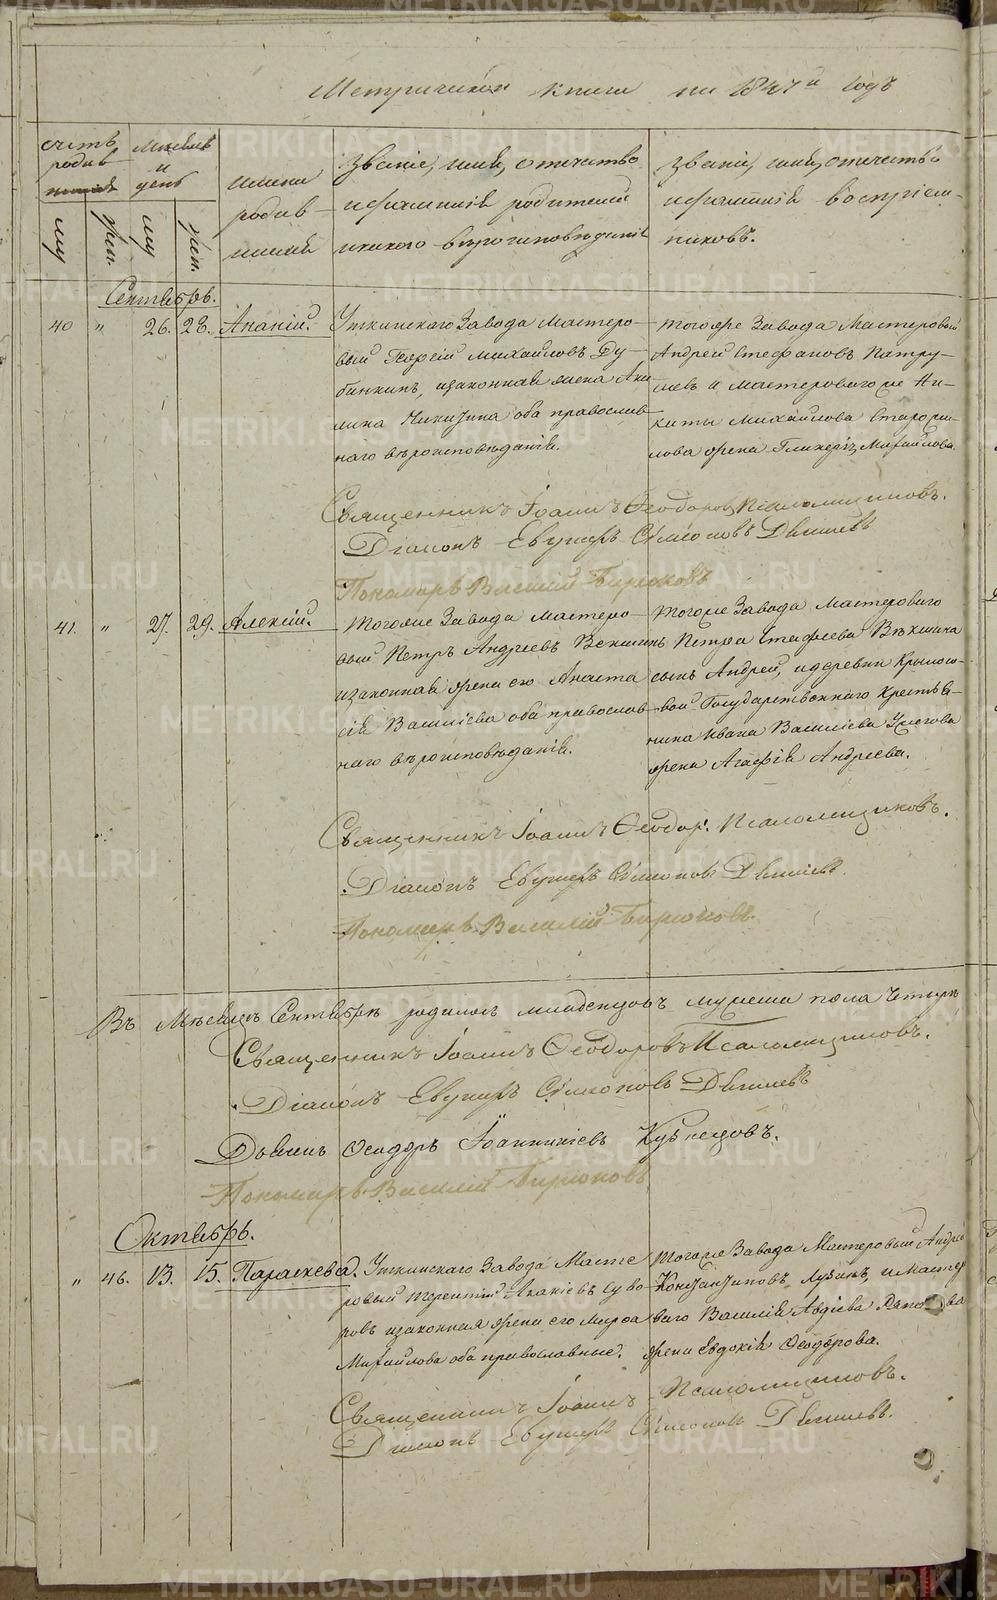 Метрической книги на 1847й годъ
счетъ родив
Мѣсяцъ и день
муж.
жен.
муж.
жен.
имена родив
шихся
Званіе, имя, отечество
и фамилія родителей
и какого вѣроисповѣданія
Званіе, имя, отечество
и фамилія воспріем-
никовъ.
Сентябрь.
40 " 26. 28. Ананій.
Уткинскаго Завода мастеро-
вый Георгій Михайловъ Ду-
бинкинъ, и законная жена Аки-
лина Никитина оба православ-
наго вѣроисповѣданія.
тогоже Завода Мастеровый
Андрей Стефановъ Патру-
шевъ и мастероваго же Ни-
киты Михайлова
жена Гликерія Михайлова.
Священникъ Іоаннъ Ѳеодоровъ Псаломщиковъ.
Діаконъ Евгеніръ Симоновъ
Пономарь Василій Бирюковъ
41. " 27. 29. Алексій.
Тогоже Завода мастеро-
вый Петръ Андреевъ Векшинъ
и законная жена его Анаста
сія Василіева оба православ-
наго вѣроисповѣданія.
тогоже Завода мастероваго
Петра Векшина
сынъ Андрей, и деревни
вой Государственнаго крестья-
нина Ивана Василіева
жена Агафія Андреева.
Священникъ Іоаннъ Ѳеодор. Псаломщиковъ.
Діаконъ Симоновъ
Пономарь Василій Бирюковъ.
Въ Мѣсяцѣ Сентябрѣ родилось младенцовъ мужеска пола четыре
Священникъ Іоаннъ Ѳеодоровъ Псаломщиковъ.
Діаконъ Симоновъ
Дьячекъ Ѳеодоръ Іоанникіевъ Кузнецовъ.
Пономарь Василій Бирюковъ
Октябрь.
" 46. 13. 15. Параскева.
Уткинскаго Завода Масте
ровый Терентій Ананіевъ Суво-
ровъ и законная жена его
Михайлова оба православные.
тогоже Завода Мастеровый Андрей
Константиновъ Лузинъ, и мастер
ваго Василія Авдіева
жена Евдокія Ѳеодорова.
Священникъ Іоаннъ Псаломщиковъ.
Діаконъ Симоновъ